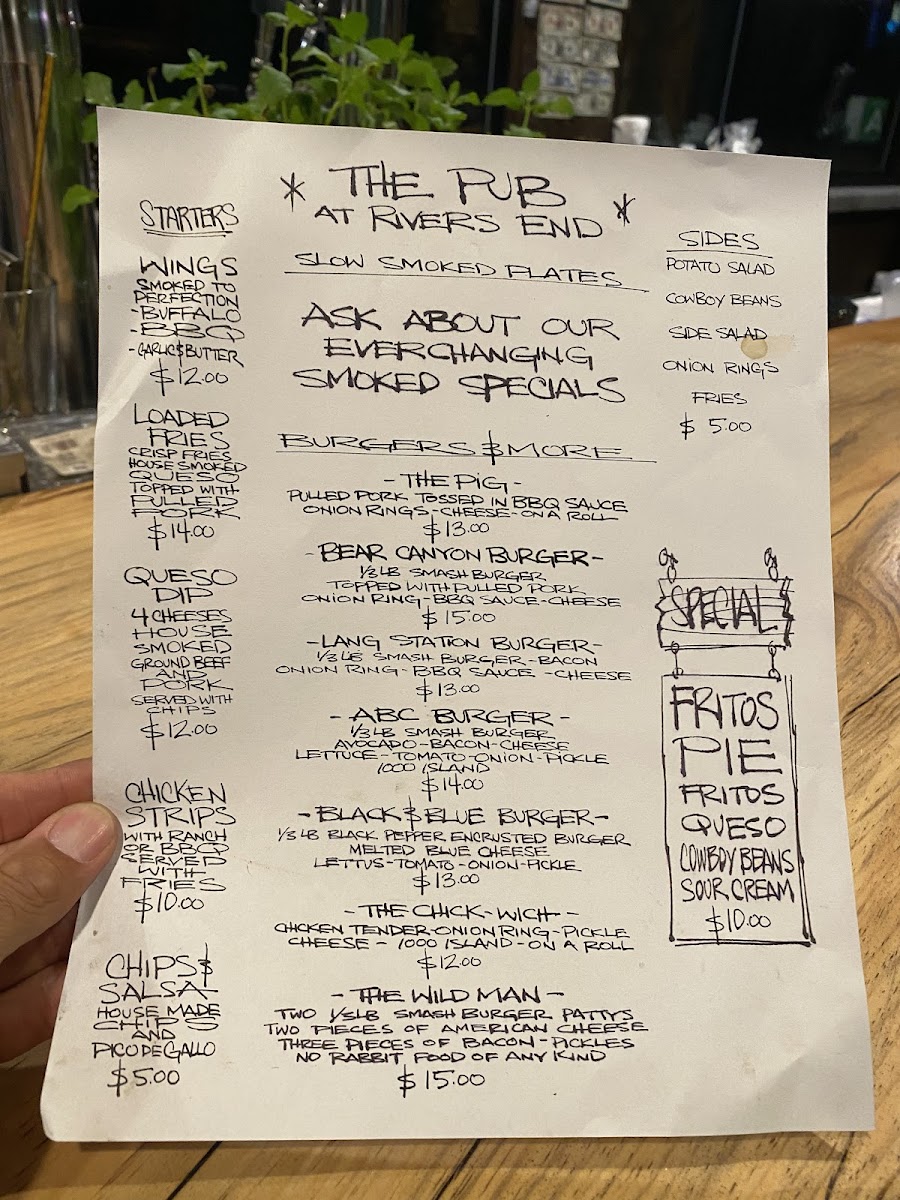 * THE PUB *
AT RIVERS END
STARTERS
WINGS
SMOKED TO
PERFECTION
-BUFFALO
-BBQ
-GARLIC$BUTTER
$12.00
LOADED
FRIES
CRISP FRIES
HOUSE SMOKED
QUESO
TOPPED WITH
PULLED
PORK
$14.00
QUESO
DIP
4 CHEESES
HOUSE
SMOKED
GROUND BEEF
AND
PORK
SERVED WITH
CHIPS
$12.00
CHICKEN
STRIPS
WITH RANCH
OR BBQ
SERVED
WITH
FRIES
$10.00
CHIPS$
SALSA
HOUSE MADE
CHIPS
AND
PICO DE GALLO
$5.00
SLOW SMOKED PLATES
ASK ABOUT OUR
EVERCHANGING
SMOKED SPECIALS
BURGERS $ MORE
- THE PIG -
PULLED PORK TOSSED IN BBQ SAUCE
ONION RINGS - CHEESE - ON A ROLL
$13.00
- BEAR CANYON BURGER -
1/3 LB SMASH BURGER
TOPPED WITH PULLED PORK
ONION RING - BBQ SAUCE - CHEESE
$15.00
- LANG STATION BURGER -
1/3 LB SMASH BURGER - BACON
ONION RING - BBQ SAUCE - CHEESE
$13.00
- ABC BURGER -
1/3 LB SMASH BURGER
AVOCADO - BACON - CHEESE
LETTUCE - TOMATO - ONION - PICKLE
1000 ISLAND
$14.00
- BLACK $ BLUE BURGER -
1/3 LB BLACK PEPPER ENCRUSTED BURGER
MELTED BLUE CHEESE
LETTUS - TOMATO - ONION - PICKLE
$13.00
- THE CHICK-WICH -
CHICKEN TENDER - ONION RING - PICKLE
CHEESE - 1000 ISLAND - ON A ROLL
$12.00
- THE WILD MAN -
TWO 1/3 LB SMASH BURGER PATTYS
TWO PIECES OF AMERICAN CHEESE
THREE PIECES OF BACON - PICKLES
NO RABBIT FOOD OF ANY KIND
$15.00
SIDES
POTATO SALAD
COWBOY BEANS
SIDE SALAD
ONION RINGS
FRIES
$ 5.00
SPECIAL
FRITOS
PIE
FRITOS
QUESO
COWBOY BEANS
SOUR CREAM
$10.00